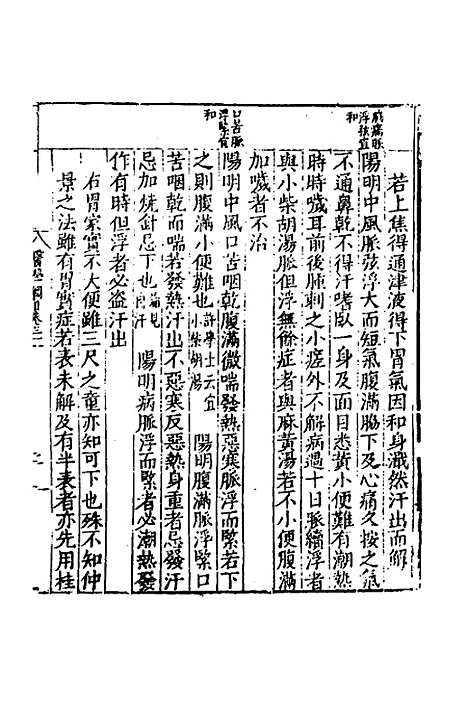 若上焦得通津液得下胃氣因和身濈然汗出而解
陽明中風脈弦浮大而短氣腹滿脇下及心痛久按之氣
不通鼻乾不得汗嗜臥一身及面目悉黃小便難有潮熱
時時噦耳前後腫刺之小瘥外不解病過十日脈續浮者
與小柴胡湯脈但浮無餘症者與麻黃湯若不小便腹滿
加噦者不治
陽明中風口苦咽乾腹滿微喘發熱惡寒脈浮而緊若下
之則腹滿小便難也許學士云宜小柴胡湯 陽明腹滿脈浮緊口
苦咽乾而喘若發熱汗出不惡寒反惡熱身重者忌發汗
忌加燒針忌下也 陽明病脈浮而緊者必潮熱發
作有時但浮者必盜汗出
右胃家實不大便雖三尺之童亦知可下也殊不知仲
景之法雖有胃實症若表未解及有半表者亦先用桂
浮弦宜和
口苦脈浮緊宜和